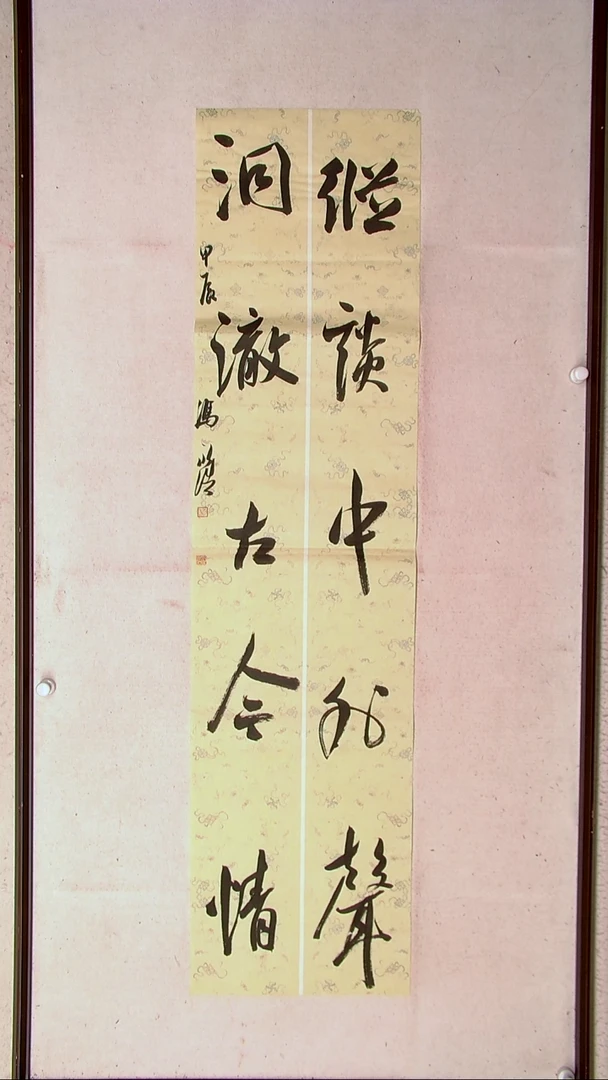 縱談中外聲
洞澈古今情
甲辰 馮